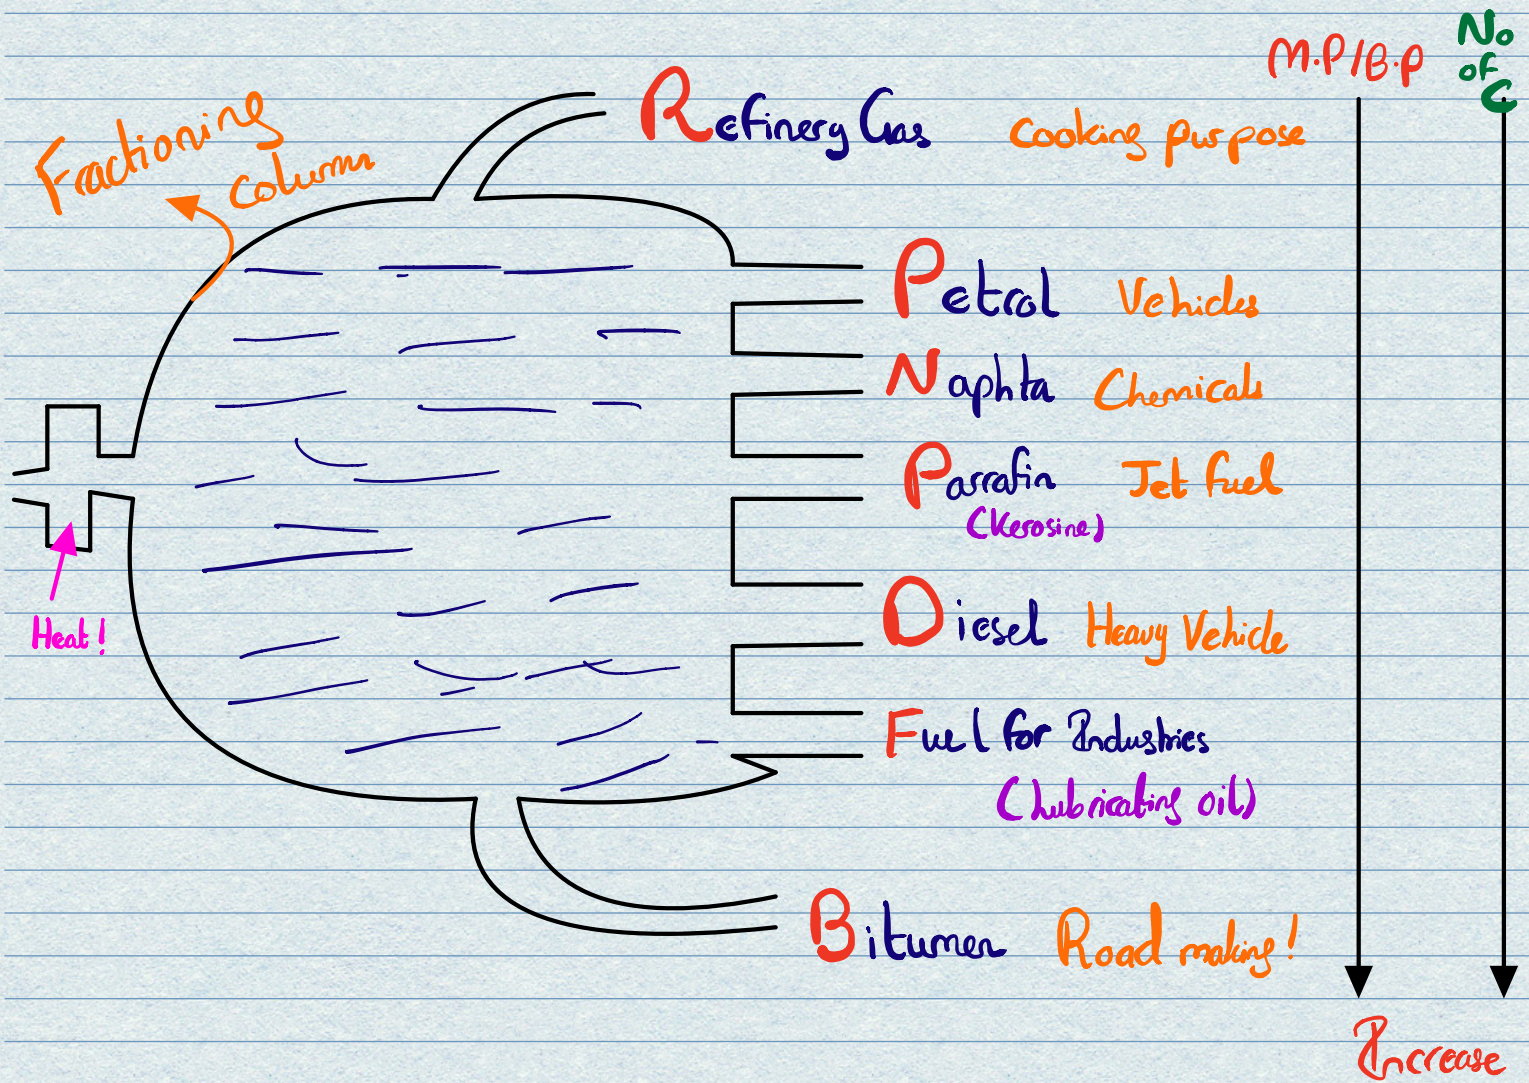 No
of
C
M.P/B.P
Fractioning
column
Refinery Gas Cooking purpose
Petrol Vehicles
Naphta Chemicals
Parrafin Jet fuel
(Kerosine)
Heat!
Diesel Heavy Vehicle
Fuel for Industries
(Lubricating oil)
Bitumen Road making!
Increase